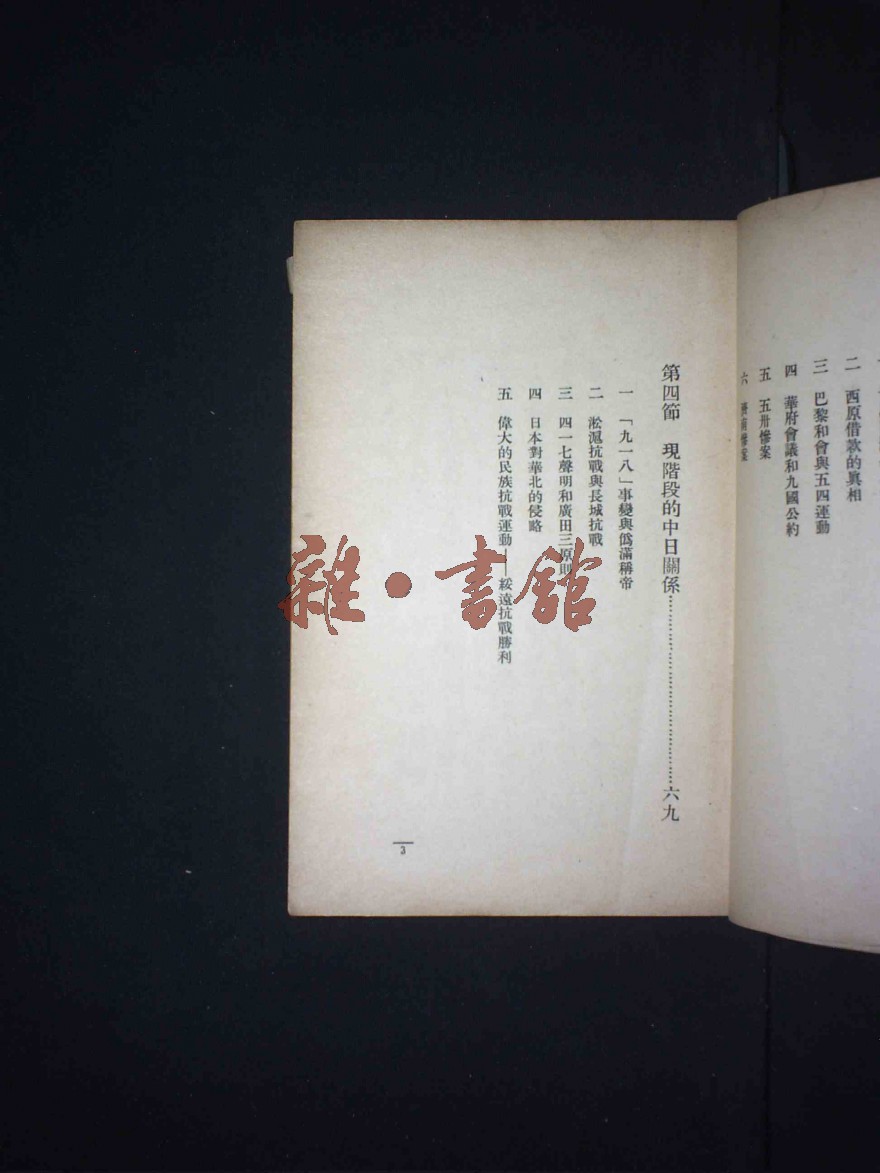 二　西原借款的眞相
三　巴黎和會與五四運動
四　華府會議和九國公約
五　五卅慘案
六　濟南慘案
第四節　現階段的中日關係……………………………六九
一　「九一八」事變與僞滿稱帝
二　淞滬抗戰與長城抗戰
三　四一七聲明和廣田三原則
四　日本對華北的侵略
五　偉大的民族抗戰運動——綏遠抗戰勝利
3
雜・書館